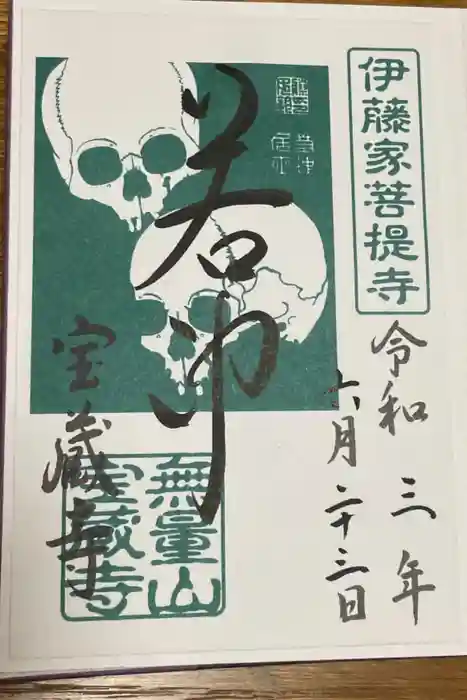 伊藤家菩提寺
令和三年
六月二十三日
若冲
若冲
居士
宝蔵寺
無量山
宝蔵寺